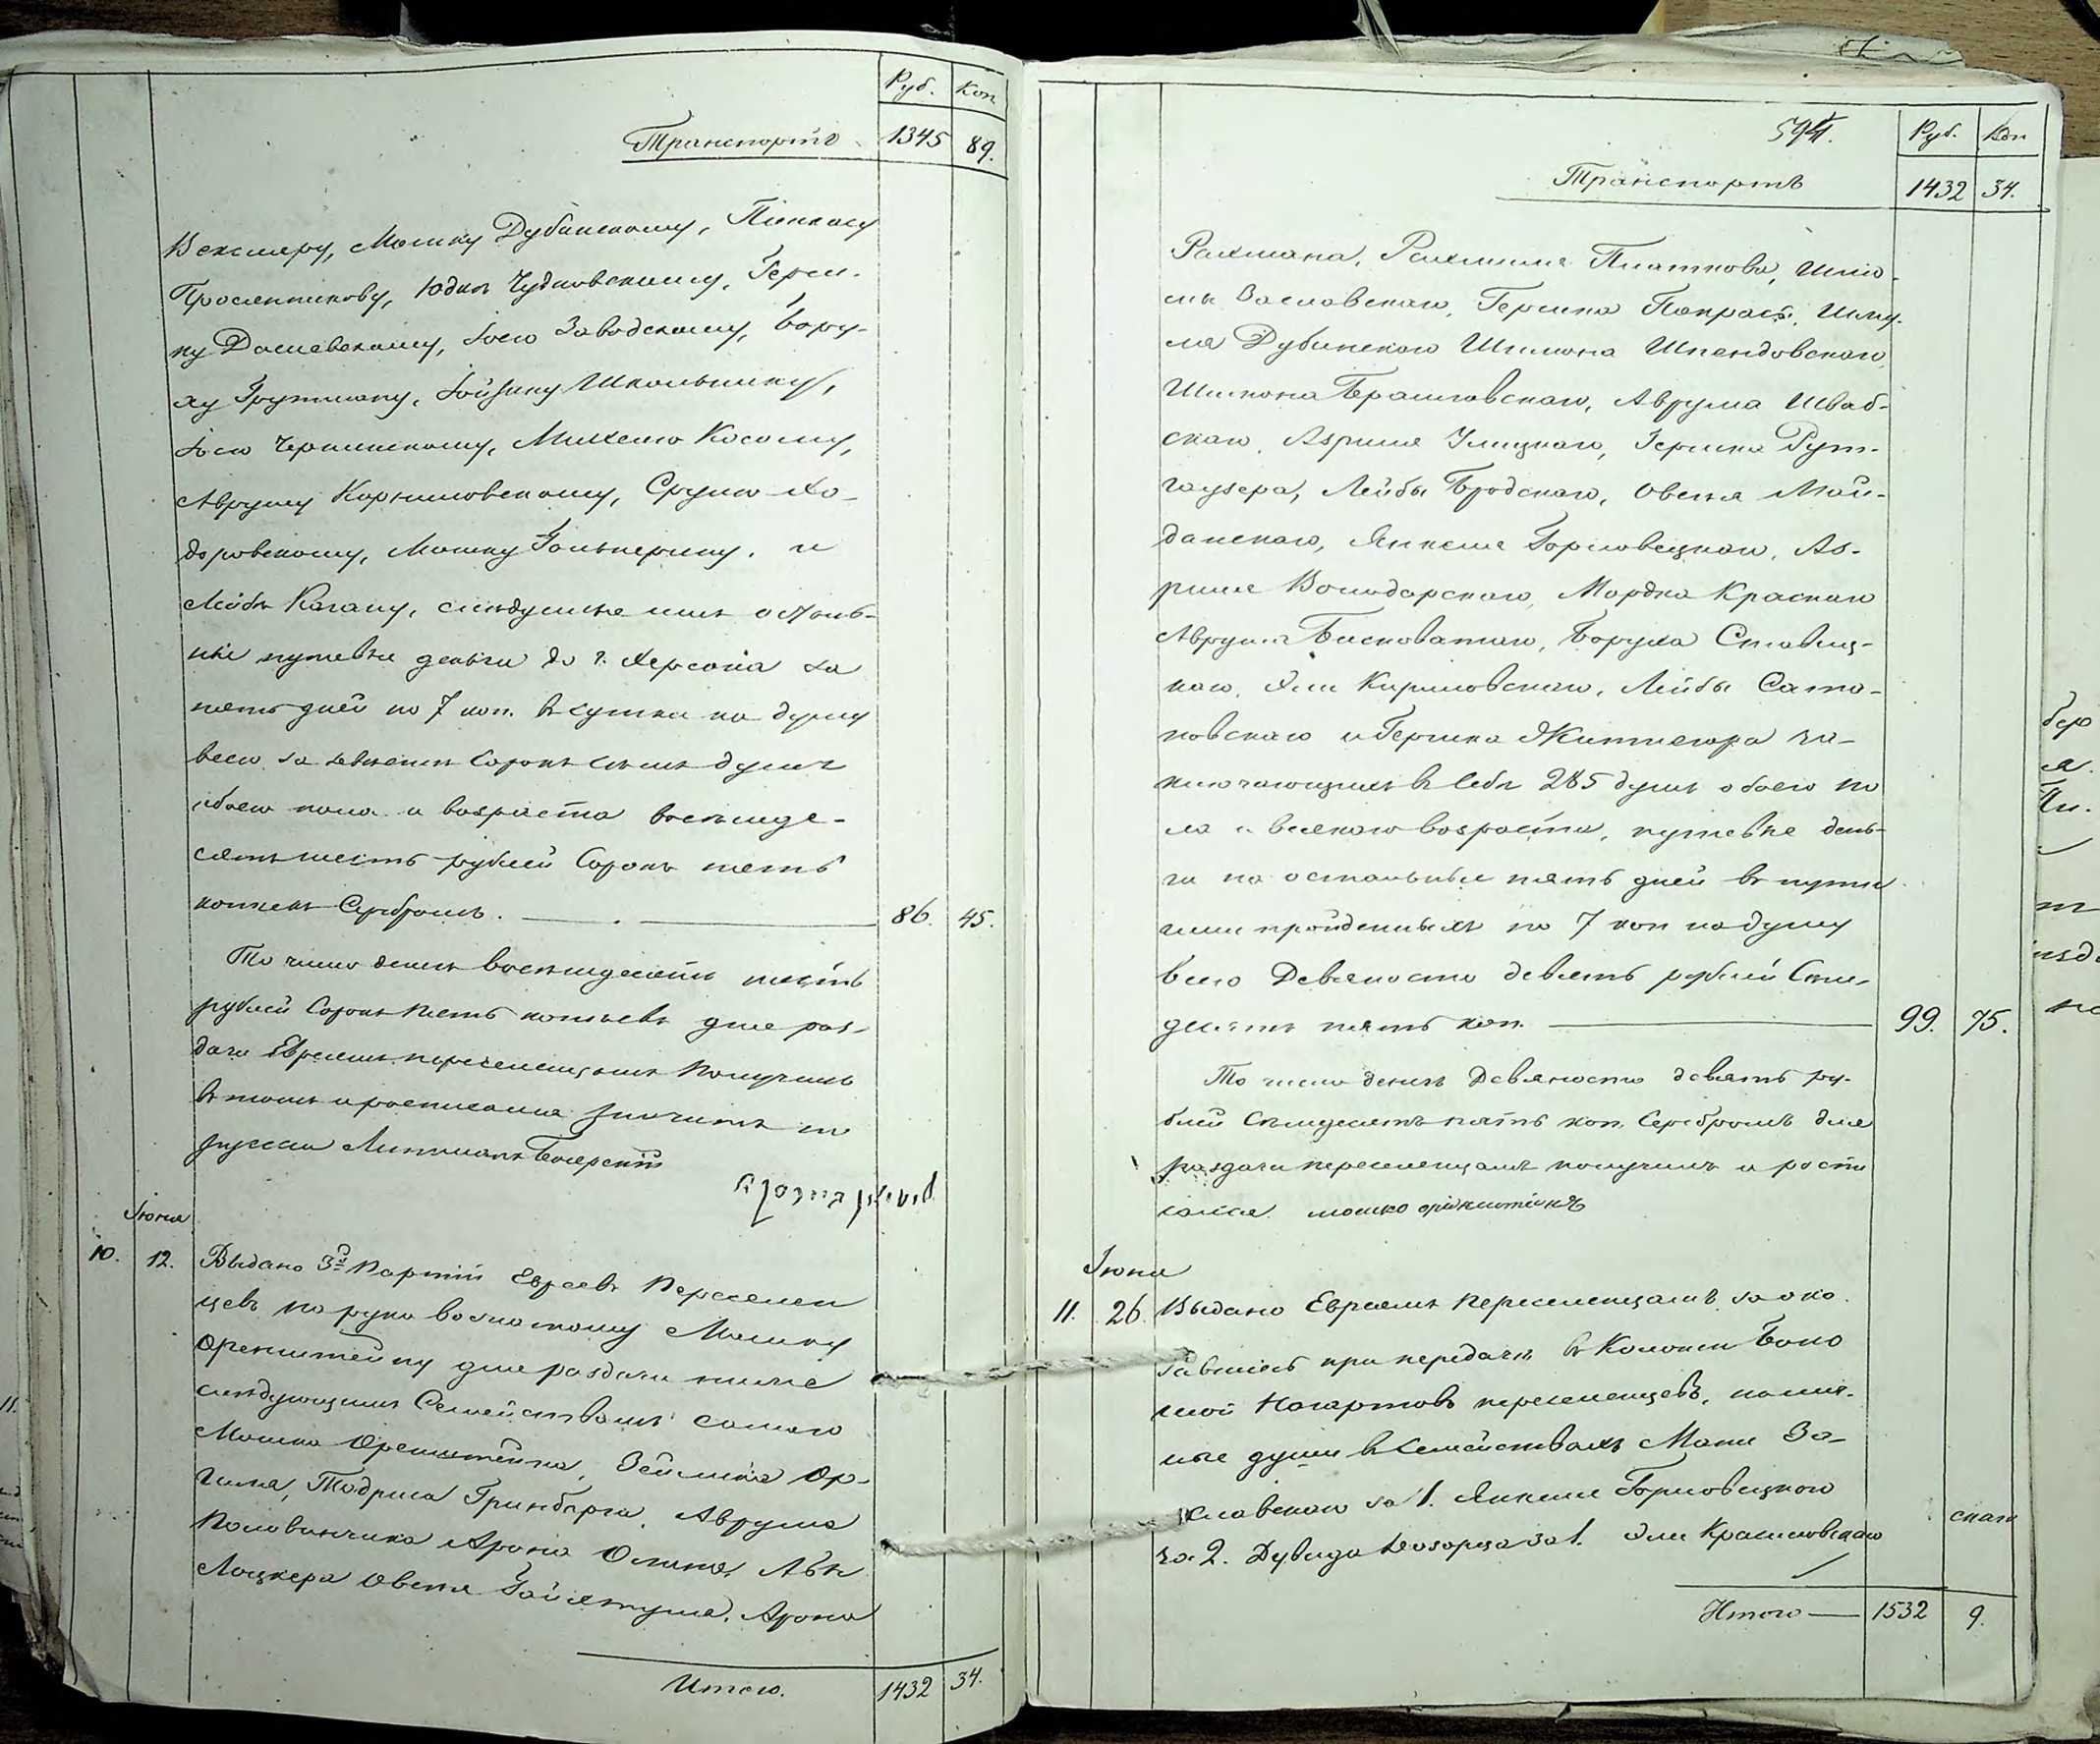 Руб. Коп
Транспортъ 1345 89.
Векслеру, Мошку Дубинскому, Пинхасу
Юдкѣ Чудновскому, Герш-
ку Дашевскому, Іосю Заводскому, Бору-
ху Грутману, Іойнку Школьнику,
Іосю Чернинскому, Михелю Косому,
Авруму Корниловскому, Срулю Хо-
доровскому, Мошку Гальперину. и
Лейбѣ Кагану, слѣдуемые имъ осталь-
ные путевые деньги до г. Херсона за
пять дней по 7 коп. въ сутки на душу
всего за двѣсти сорокъ семь душъ
обоего пола и возраста восемьде-
сятъ шесть рублей Сорокъ пять
копѣекъ Серебромъ. 86. 45.
То число денегъ восемьдесятъ шесть
рублей Сорокъ пять копѣекъ для раз-
дачи Евреямъ переселенцамъ получилъ
въ томъ и росписался
Липманъ Боярскій
Іюня
10. 12. Выдано 3й Партіи Евреевъ Переселен
цевъ на руки Мошку
Оренштейну для раздачи ниже
слѣдующимъ Семействамъ самого
Мошка Оренштейна, Зейлика Ор-
Тодриса Гринберга, Аврума
Половинчика Арона
Лоцкера Овсея Арона
Итого. 1432 34.
594.
Руб. Коп
Транспортъ 1432 34.
Рахмана, Рахмиля Пляткова, Шмо-
Заславскаго, Гершка Покраса, Шму-
ля Дубинскаго Шимона Шпендовскаго,
Шимона Брашовскаго, Аврума Шваб-
скаго, Азриля Улицкаго, Гершка Рут-
гаузера, Лейбы Бродскаго, Овсея Май-
данскаго, Янкеля Горловецкаго, Аз-
риля Володарскаго, Мордка Краснаго
Аврума Бисноватаго, Боруха Ставиц-
каго, Эли Кириловскаго, Лейбы Сата-
новскаго и Гершка Житомира за-
ключающихъ въ себѣ 285 душъ обоего по
ла и всякаго возраста, путевые день-
ги на остальные пять дней въ пути
ими пройденныхъ по 7 коп на душу
всего Девяносто девять рублей Семь-
десятъ пять коп. 99. 75.
То число денегъ Девяносто девять ру-
блей Семьдесятъ пять коп. Серебромъ для
раздачи переселенцамъ получилъ и роспи
сался. мошко оренштейнъ
Іюня
11. 26. Выдано Евреямъ Переселенцамъ за ока-
завшіясь при передачѣ въ Колонии Боло
шой Нагартовъ переселенцевъ,
ные души въ семействахъ Мошки За-
славскаго за 1. Янкеля Горловецкаго
за 2. Дувида за 1. Эли Красиловскаго
Итого 1532 9.